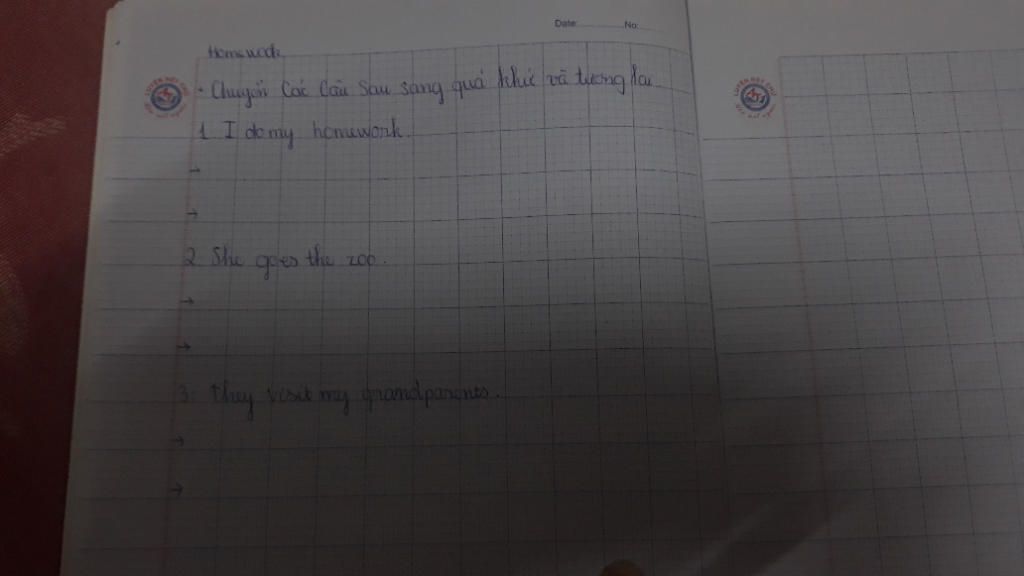 Date: No:
Homework
- Chuyển các câu sau sang quá khứ và tương lai
1. I do my homework.
→
→
2. She goes the zoo.
→
→
3. They visit my grandparents.
→
→